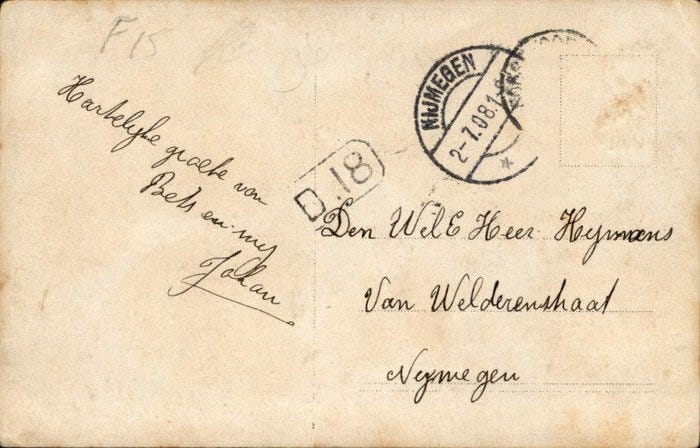 F 15
Hartelijke groete van
Bets en mij
Johan
NIJMEGEN
2-7.08.1
D.18
Den WelE Heer Heymans
Van Welderenstraat
Nijmegen